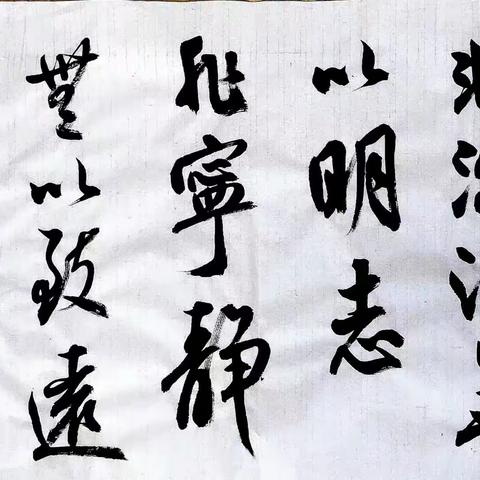 以明志
非寧靜
無以致遠